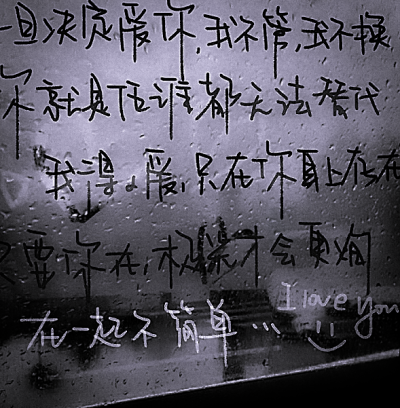 一旦决定爱你,我不管,我不换
你就是任谁都无法替代
我得。爱,只在你身上存在
只要你在,才会更
I love you
在一起不简单... :)